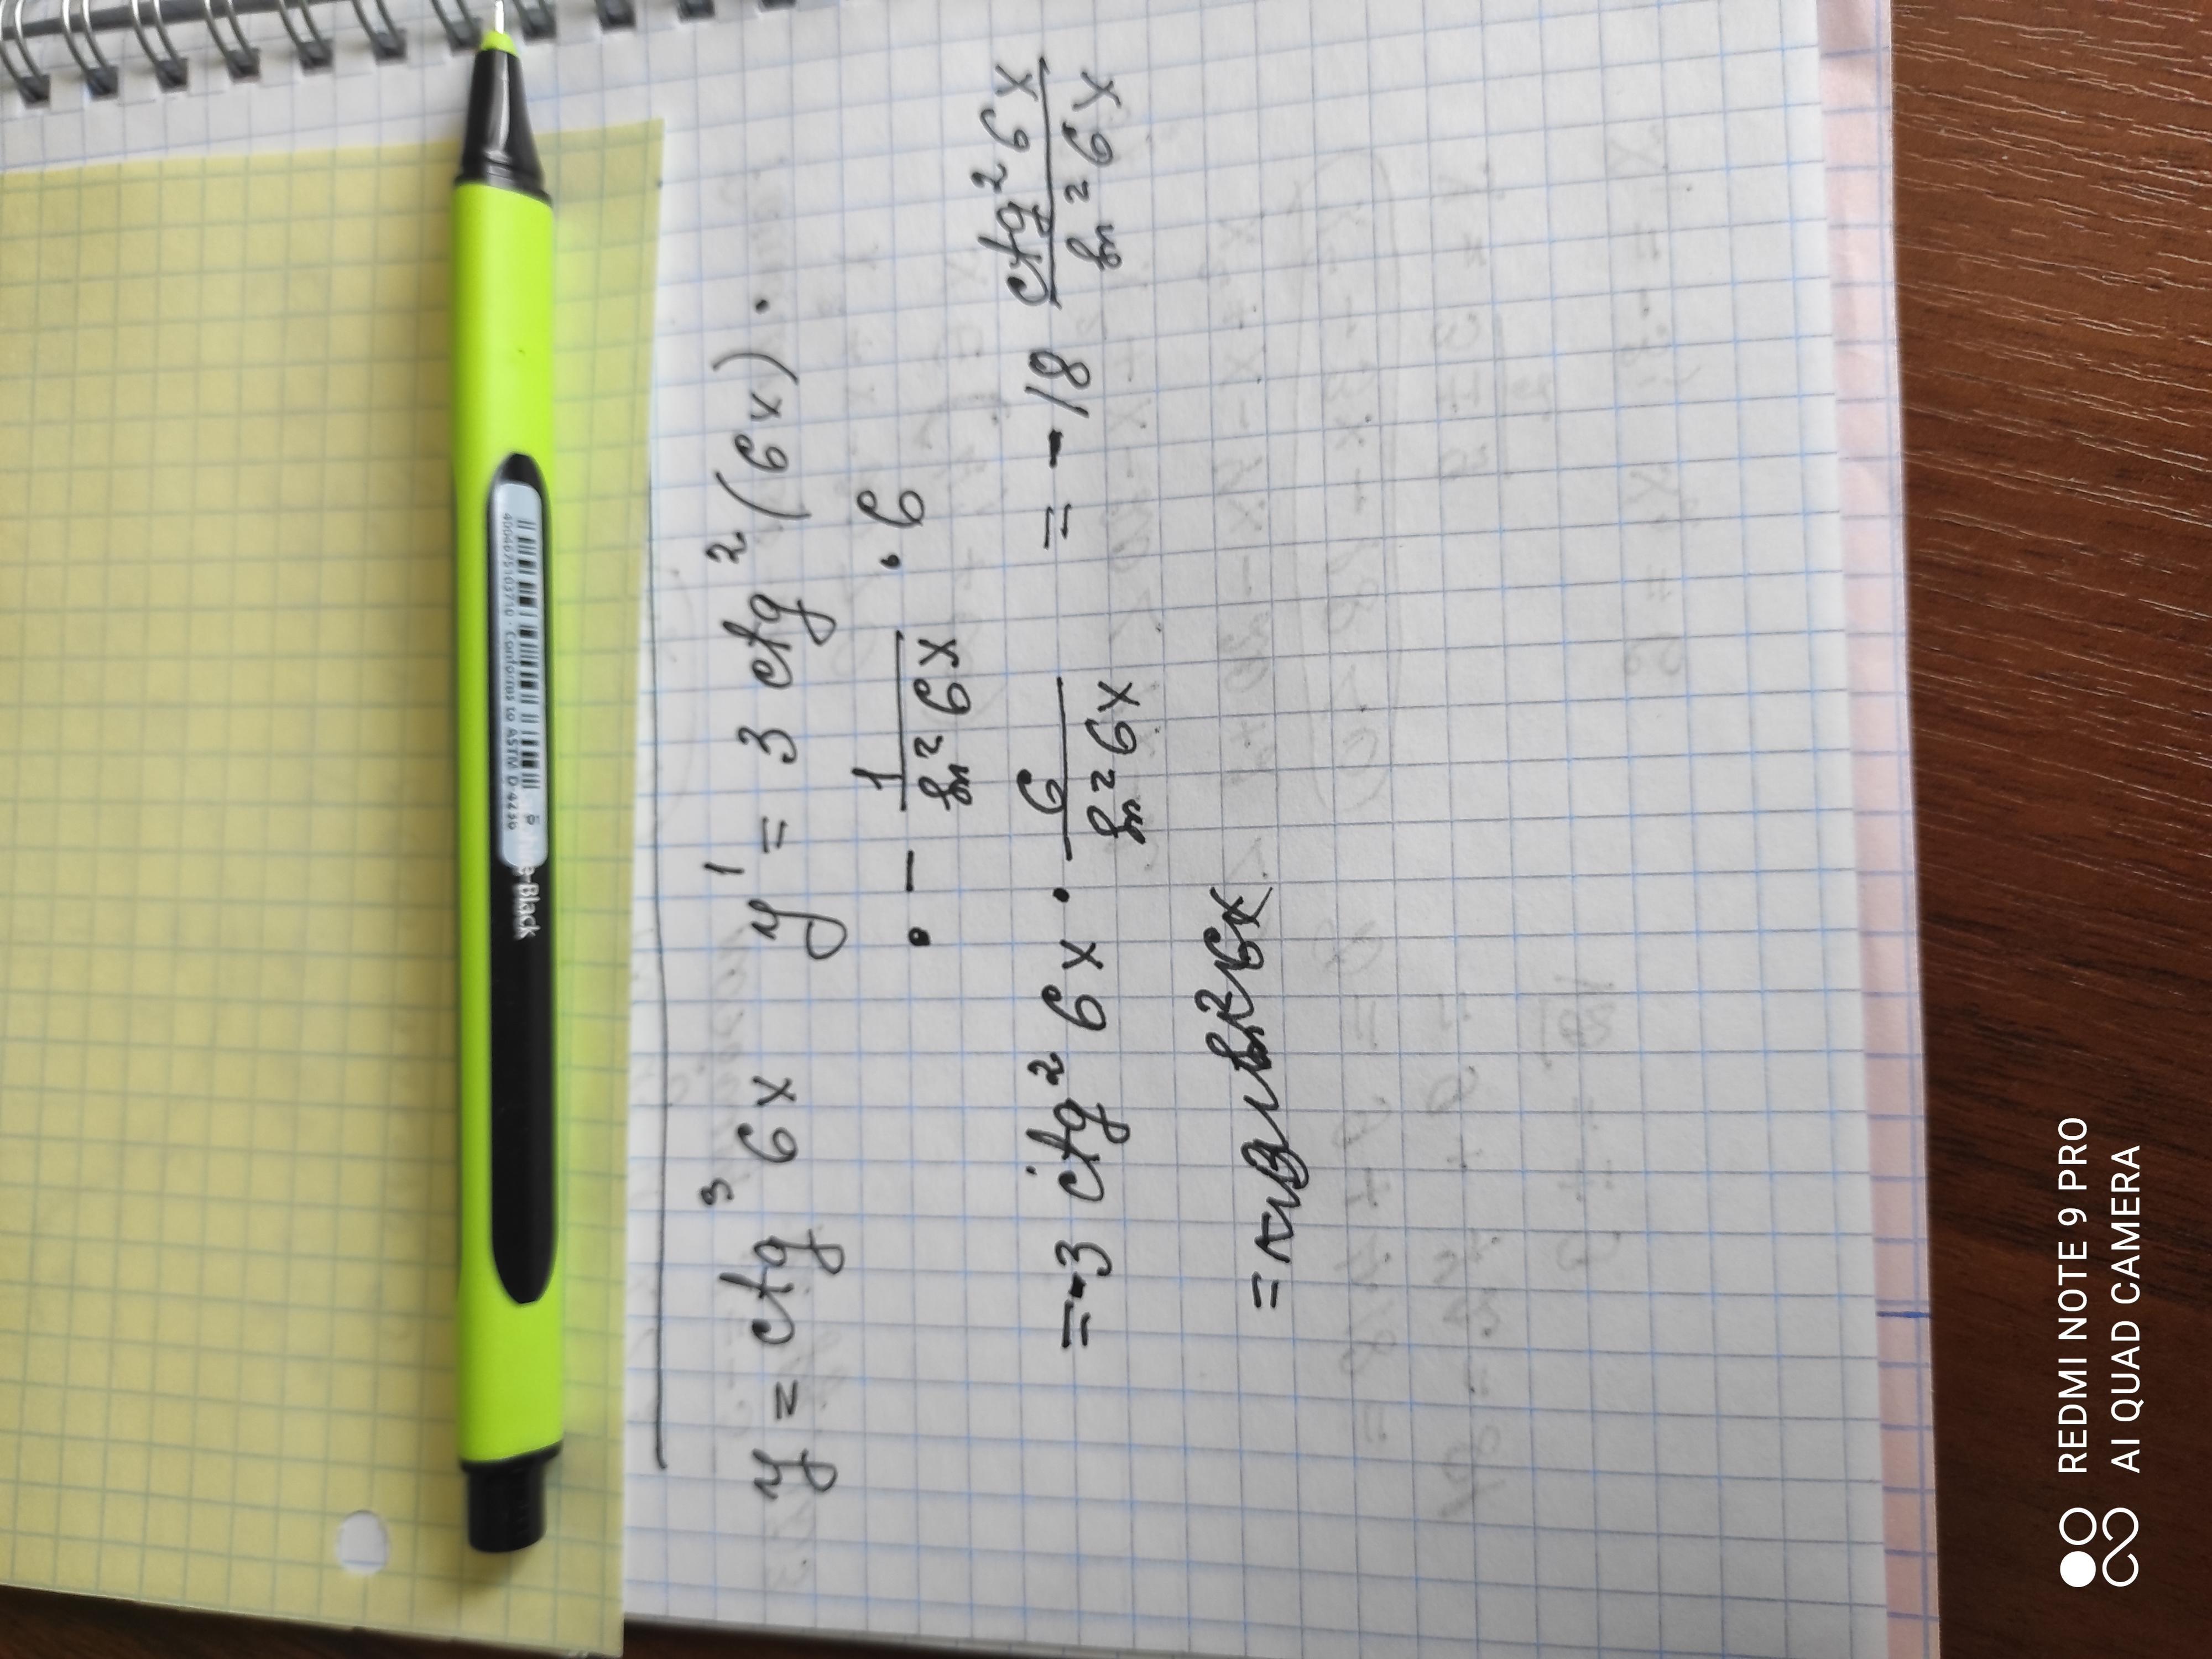 y = ctg³ 6x    y' = 3 ctg² (6x) ·
· - 1/sin² 6x · 6
= -3 ctg² 6x · 6/sin² 6x = -18 ctg² 6x/sin² 6x
e-Black
4004675103710 · Conforms to ASTM D-4236
REDMI NOTE 9 PRO
AI QUAD CAMERA